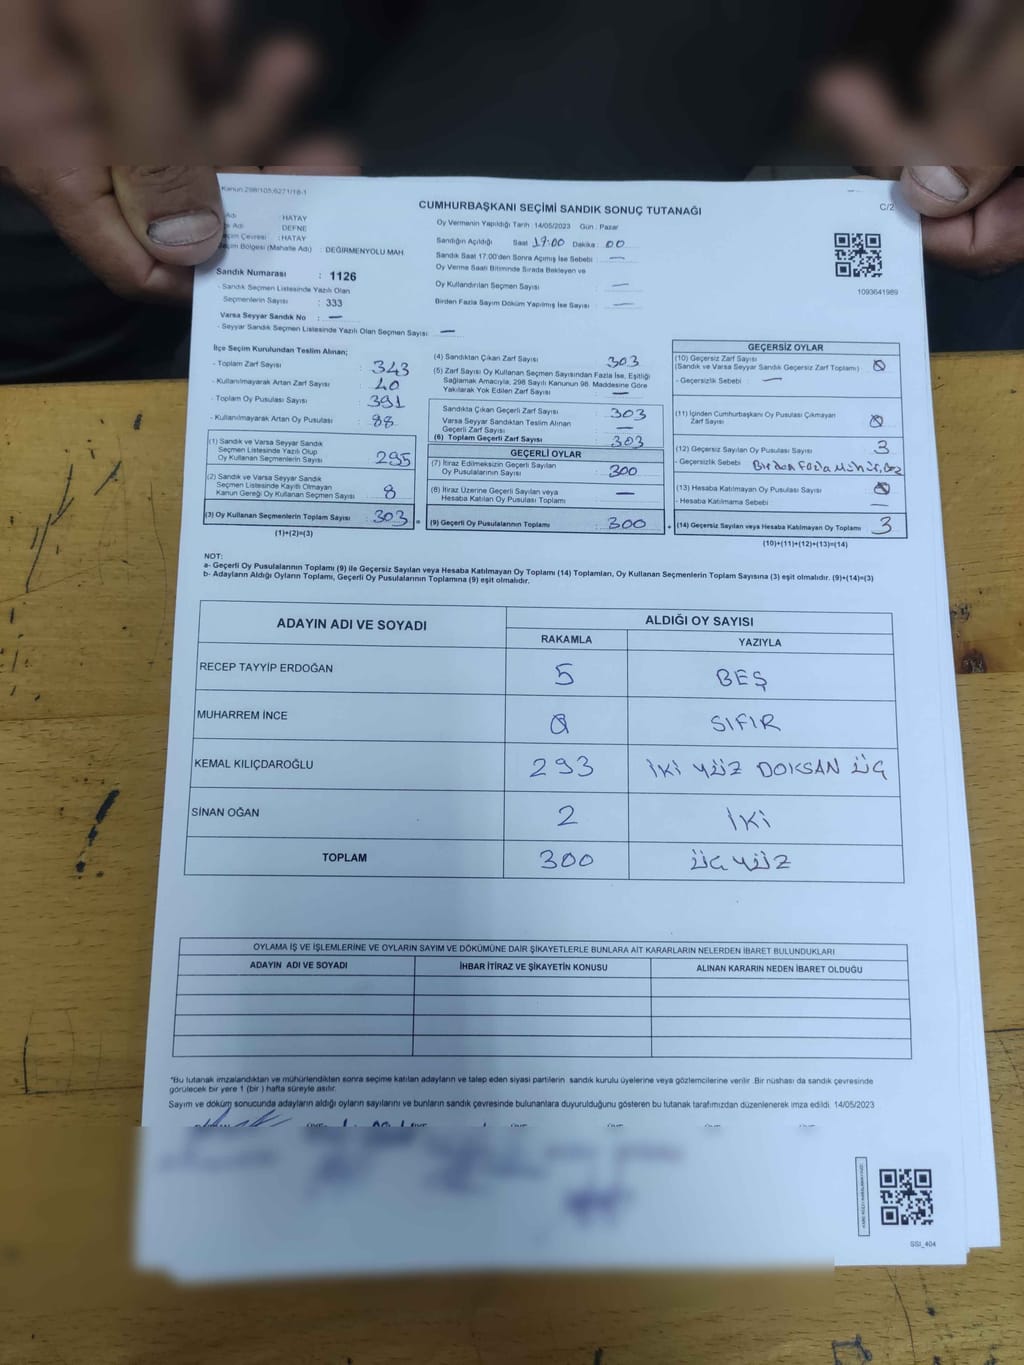 Kanun:298/105,6271/18-1
CUMHURBAŞKANI SEÇİMİ SANDIK SONUÇ TUTANAĞI
C/2
Adı : HATAY
Adı : DEFNE
Seçim Çevresi : HATAY
Seçim Bölgesi (Mahalle Adı) : DEĞİRMENYOLU MAH
Sandık Numarası : 1126
- Sandık Seçmen Listesinde Yazılı Olan
Seçmenlerin Sayısı : 333
Varsa Seyyar Sandık No : —
- Seyyar Sandık Seçmen Listesinde Yazılı Olan Seçmen Sayısı: —
Oy Vermenin Yapıldığı Tarih : 14/05/2023 Gün : Pazar
Sandığın Açıldığı Saat 17:00 Dakika : 00
Sandık Saat 17:00'den Sonra Açımış İse Sebebi : —
Oy Verme Saati Bitiminde Sırada Bekleyen ve
Oy Kullandırılan Seçmen Sayısı : —
Birden Fazla Sayım Döküm Yapılmış İse Sayısı : —
1093641989
İlçe Seçim Kurulundan Teslim Alınan;
- Toplam Zarf Sayısı : 343
- Kullanılmayarak Artan Zarf Sayısı : 40
- Toplam Oy Pusulası Sayısı : 391
- Kullanılmayarak Artan Oy Pusulası : 88
(1) Sandık ve Varsa Seyyar Sandık
Seçmen Listesinde Yazılı Olup
Oy Kullanan Seçmenlerin Sayısı : 295
(2) Sandık ve Varsa Seyyar Sandık
Seçmen Listesinde Kayıtlı Olmayan
Kanun Gereği Oy Kullanan Seçmen Sayısı : 8
(3) Oy Kullanan Seçmenlerin Toplam Sayısı : 303
(1)+(2)=(3)
(4) Sandıktan Çıkan Zarf Sayısı : 303
(5) Zarf Sayısı Oy Kullanan Seçmen Sayısından Fazla İse, Eşitliği
Sağlamak Amacıyla, 298 Sayılı Kanunun 98. Maddesine Göre
Yakılarak Yok Edilen Zarf Sayısı : —
Sandıkta Çıkan Geçerli Zarf Sayısı : 303
Varsa Seyyar Sandıktan Teslim Alınan
Geçerli Zarf Sayısı : —
(6) Toplam Geçerli Zarf Sayısı : 303
GEÇERLİ OYLAR
(7) İtiraz Edilmeksizin Geçerli Sayılan
Oy Pusulalarının Sayısı : 300
(8) İtiraz Üzerine Geçerli Sayılan veya
Hesaba Katılan Oy Pusulası Toplamı : —
= (9) Geçerli Oy Pusulalarının Toplamı : 300
GEÇERSİZ OYLAR
(10) Geçersiz Zarf Sayısı
(Sandık ve Varsa Seyyar Sandık Geçersiz Zarf Toplamı) : 0
- Geçersizlik Sebebi : —
(11) İçinden Cumhurbaşkanı Oy Pusulası Çıkmayan
Zarf Sayısı : 0
(12) Geçersiz Sayılan Oy Pusulası Sayısı : 3
- Geçersizlik Sebebi : Birden Fazla Mühür,
(13) Hesaba Katılmayan Oy Pusulası Sayısı : 0
- Hesaba Katılmama Sebebi : —
+ (14) Geçersiz Sayılan veya Hesaba Katılmayan Oy Toplamı : 3
(10)+(11)+(12)+(13)=(14)
NOT:
a- Geçerli Oy Pusulalarının Toplamı (9) ile Geçersiz Sayılan veya Hesaba Katılmayan Oy Toplamı (14) Toplamları, Oy Kullanan Seçmenlerin Toplam Sayısına (3) eşit olmalıdır. (9)+(14)=(3)
b- Adayların Aldığı Oyların Toplamı, Geçerli Oy Pusulalarının Toplamına (9) eşit olmalıdır.
ADAYIN ADI VE SOYADI ALDIĞI OY SAYISI
RAKAMLA YAZIYLA
RECEP TAYYİP ERDOĞAN 5 BEŞ
MUHARREM İNCE 0 SIFIR
KEMAL KILIÇDAROĞLU 293 İKİ YÜZ DOKSAN ÜÇ
SİNAN OĞAN 2 İKİ
TOPLAM 300 ÜÇ YÜZ
OYLAMA İŞ VE İŞLEMLERİNE VE OYLARIN SAYIM VE DÖKÜMÜNE DAİR ŞİKAYETLERLE BUNLARA AİT KARARLARIN NELERDEN İBARET BULUNDUKLARI
ADAYIN ADI VE SOYADI İHBAR İTİRAZ VE ŞİKAYETİN KONUSU ALINAN KARARIN NEDEN İBARET OLDUĞU
*Bu tutanak imzalandıktan ve mühürlendikten sonra seçime katılan adayların ve talep eden siyasi partilerin sandık kurulu üyelerine veya gözlemcilerine verilir .Bir nüshası da sandık çevresinde
görülecek bir yere 1 (bir ) hafta süreyle asılır.
Sayım ve döküm sonucunda adayların aldığı oyların sayılarını ve bunların sandık çevresinde bulunanlara duyurulduğunu gösteren bu tutanak tarafımızdan düzenlenerek imza edildi. 14/05/2023
SSI_404